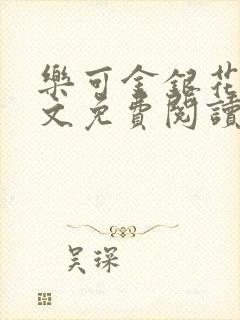 樂可金銀花
文免費閱讀
吴琛